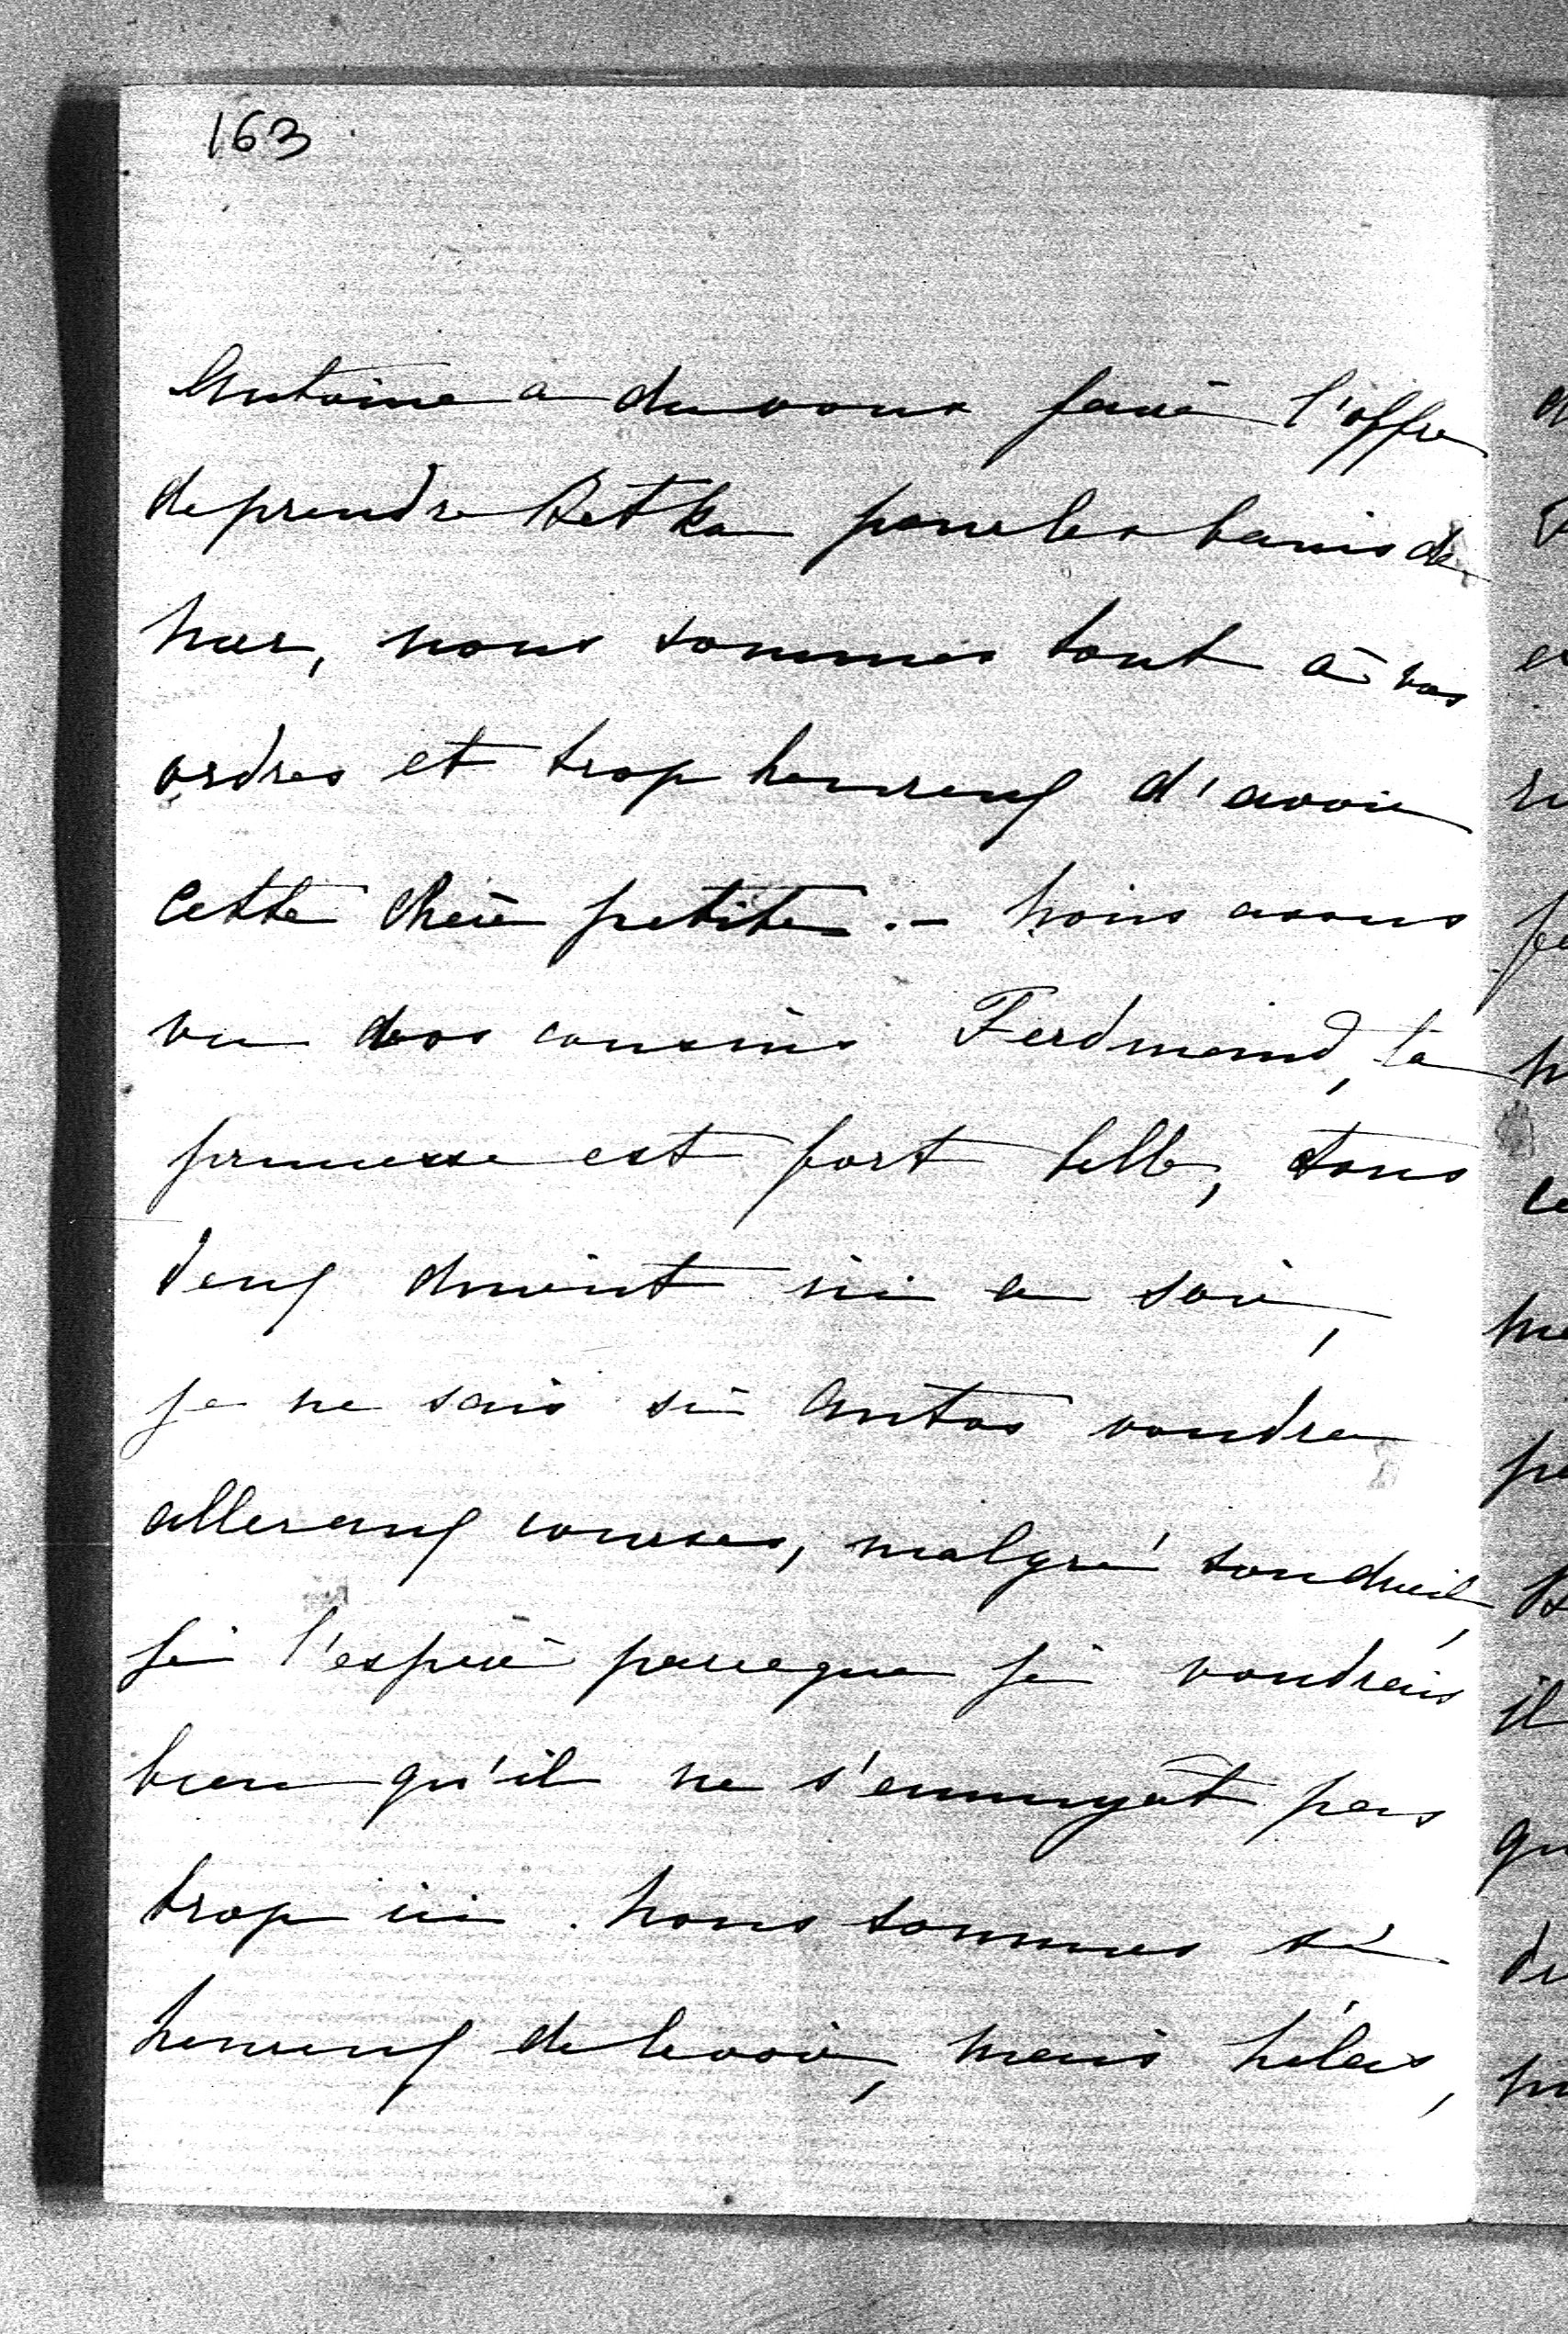 163
Antoine a du vous faire l'offre
de prendre Betka pour les bains de
mer, nous sommes tout à vos
ordres et trop heureux d'avoir
cette chère petite. - Nous avons
vu vos cousins Ferdinand, la
princesse est fort belle, tous
deux dinent ici ce soir,
je ne sais si Antos voudra
aller aux courses, malgré son deuil,
je l'espère parceque je voudrais
bien qu'il ne s'ennuyât pas
trop ici. Nous sommes si
heureux de le voir, mais hélas,